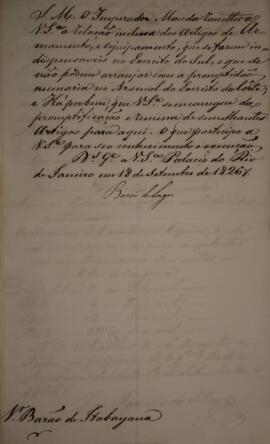 S. M. O Imperador Manda remetter a
V. S.ª a relação inclusa dos Artigos de Ar-
mamento, e Equipamento, que se fazem in-
dispensaveis no Exercito do Sul, e que se
não podem arranjar com a promptidão
necessaria no Arsenal do Exercito da Corte,
e Há por bem que V. S.ª se encarregue da
promptificação e remessa de semelhantes
Artigos para aqui. O que participo a
V. S.ª para seu conhecimento e execução.
D.s G.e a V. S.ª Palacio do Rio
de Janeiro em 18 de Setembro de 1826.
Barão de Lages
S.r Barão de Itabayana